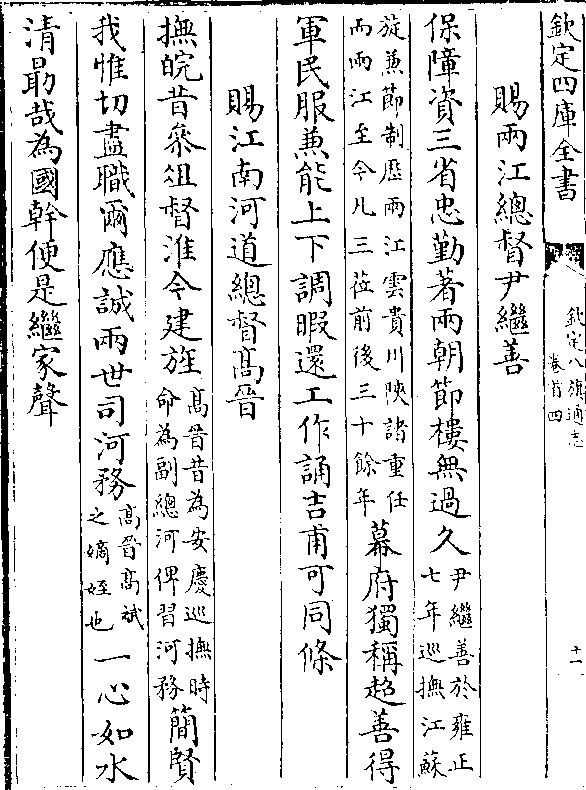 欽定四庫全書
欽定八旗通志
卷首四
十一
賜兩江總督尹繼善
保障資三省忠勤著兩朝節樓無過久尹繼善於雍正七年巡撫江蘇
旋兼節制歷兩江雲貴川陜諸重任而兩江至今凡三蒞前後三十餘年幕府獨稱超善得
軍民服兼能上下調暇還工作誦吉甫可同條
賜江南河道總督高晉
撫皖昔叅俎督淮今建旌高晉昔為安慶巡撫時命為副總河俾習河務簡賢
我惟切盡職爾應誠兩世司河務高晉高斌之嫡姪也一心如水
清勗哉為國幹便是繼家聲